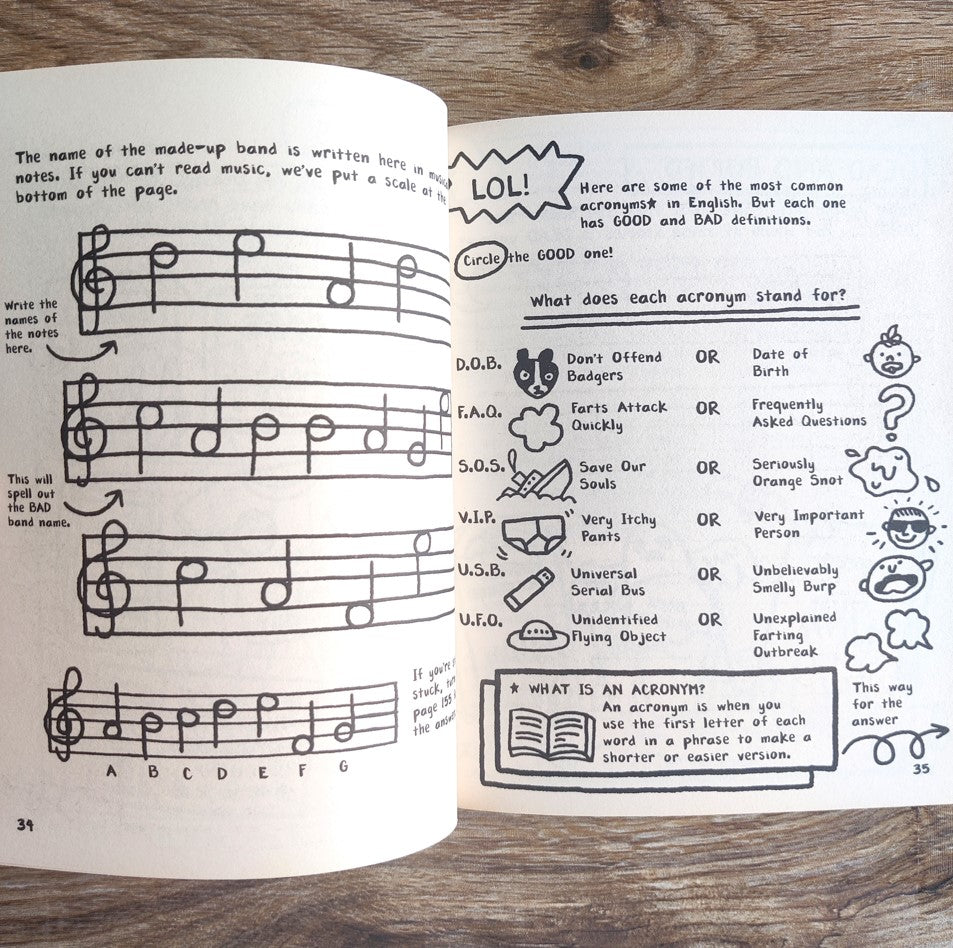 The name of the made-up band is written here in musical
notes. If you can't read music, we've put a scale at the
bottom of the page.
Write the
names of
the notes
here.
This will
spell out
the BAD
band name.
If you're
stuck,
page 155
the answer
A B C D E F G
34
LOL!
Here are some of the most common
acronyms★ in English. But each one
has GOOD and BAD definitions.
Circle the GOOD one!
What does each acronym stand for?
D.O.B. Don't Offend Badgers OR Date of Birth
F.A.Q. Farts Attack Quickly OR Frequently Asked Questions
S.O.S. Save Our Souls OR Seriously Orange Snot
V.I.P. Very Itchy Pants OR Very Important Person
U.S.B. Universal Serial Bus OR Unbelievably Smelly Burp
U.F.O. Unidentified Flying Object OR Unexplained Farting Outbreak
★ WHAT IS AN ACRONYM?
An acronym is when you
use the first letter of each
word in a phrase to make a
shorter or easier version.
This way
for the
answer
35